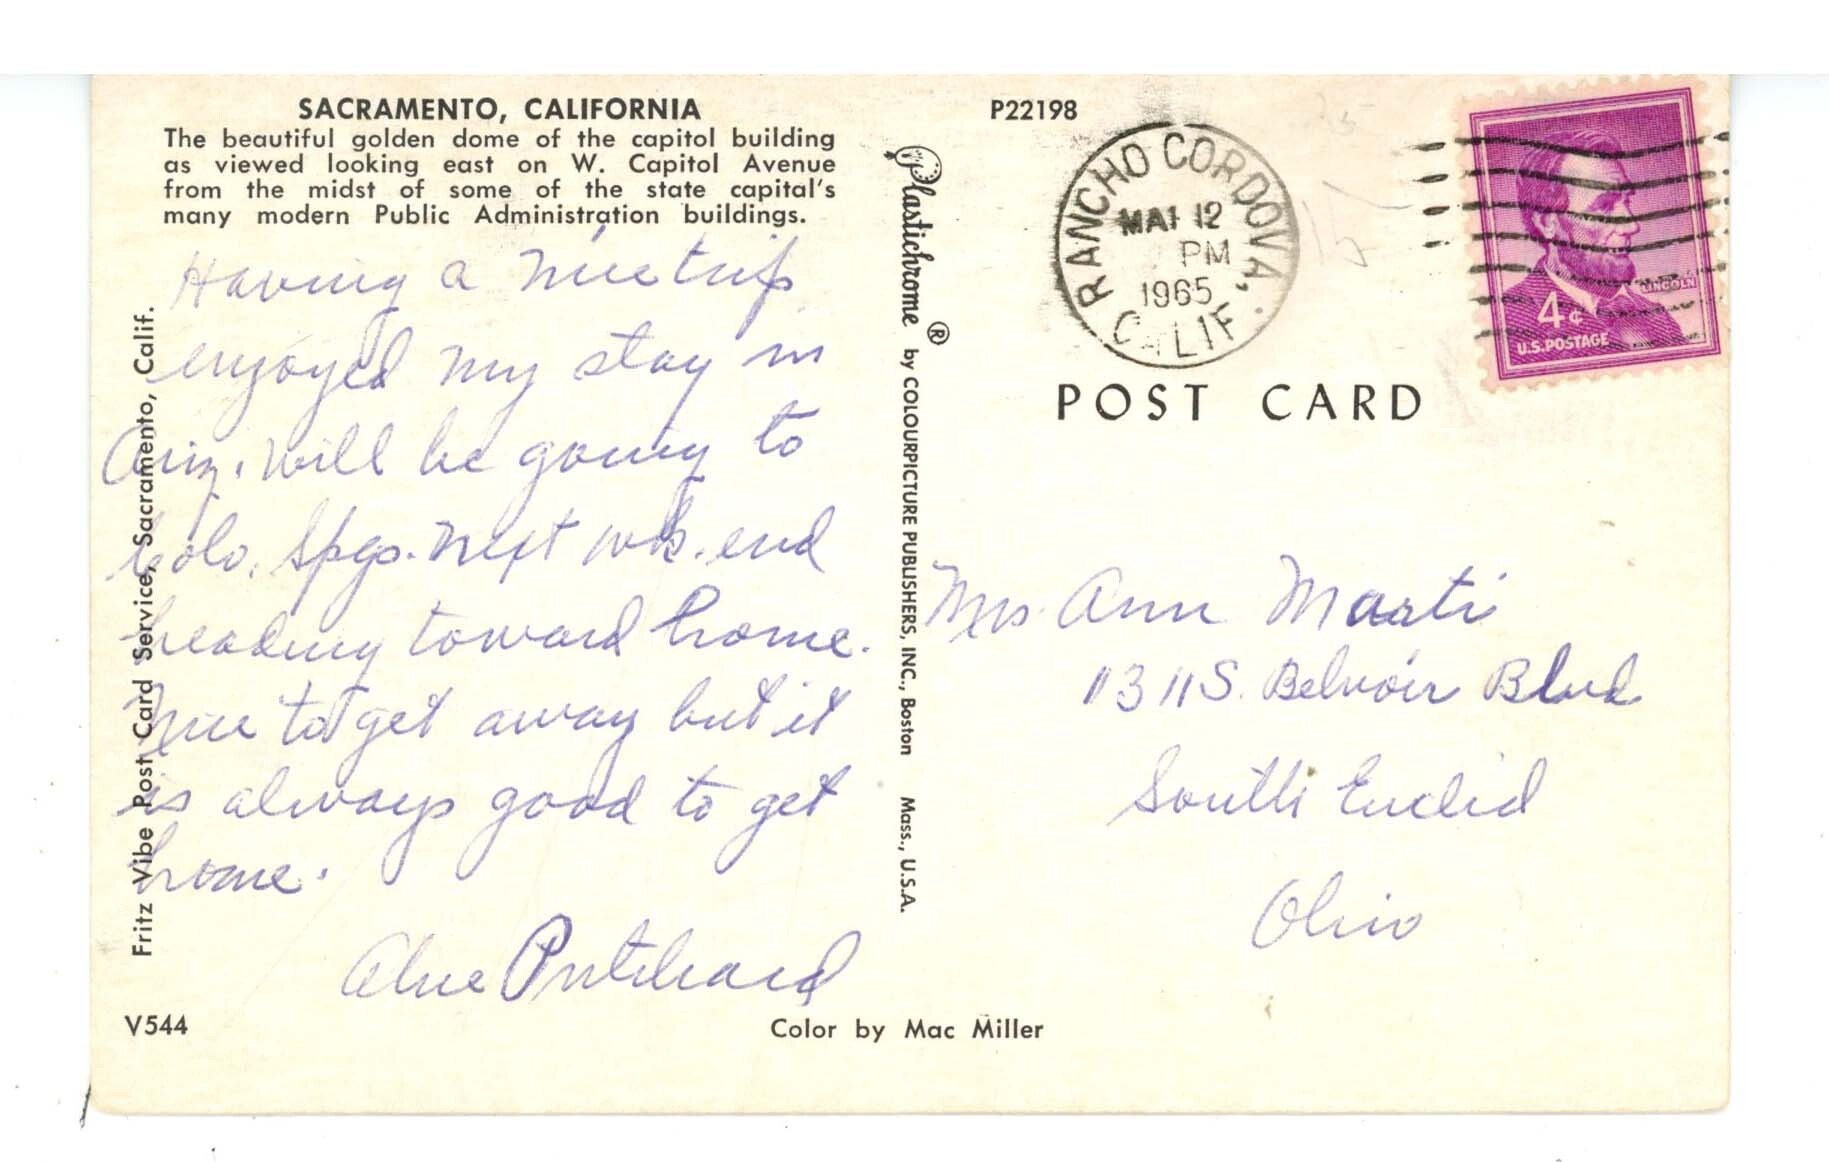 SACRAMENTO, CALIFORNIA
The beautiful golden dome of the capitol building
as viewed looking east on W. Capitol Avenue
from the midst of some of the state capital's
many modern Public Administration buildings.
Having a nice trip
enjoyed my stay in
Ariz. will be going to
Colo. Spgs. next wk. end
heading toward home.
Nice to get away but it
is always good to get
home.
Alice Pritchard
V544
Fritz Vibe Post Card Service, Sacramento, Calif.
Plastichrome ® by COLOURPICTURE PUBLISHERS, INC., Boston Mass., U.S.A.
Color by Mac Miller
P22198
RANCHO CORDOVA, CALIF.
12
PM
1965
LINCOLN
4¢
U.S. POSTAGE
POST CARD
Mrs Ann Marti
1311 S. Belvoir Blvd
South Euclid
Ohio